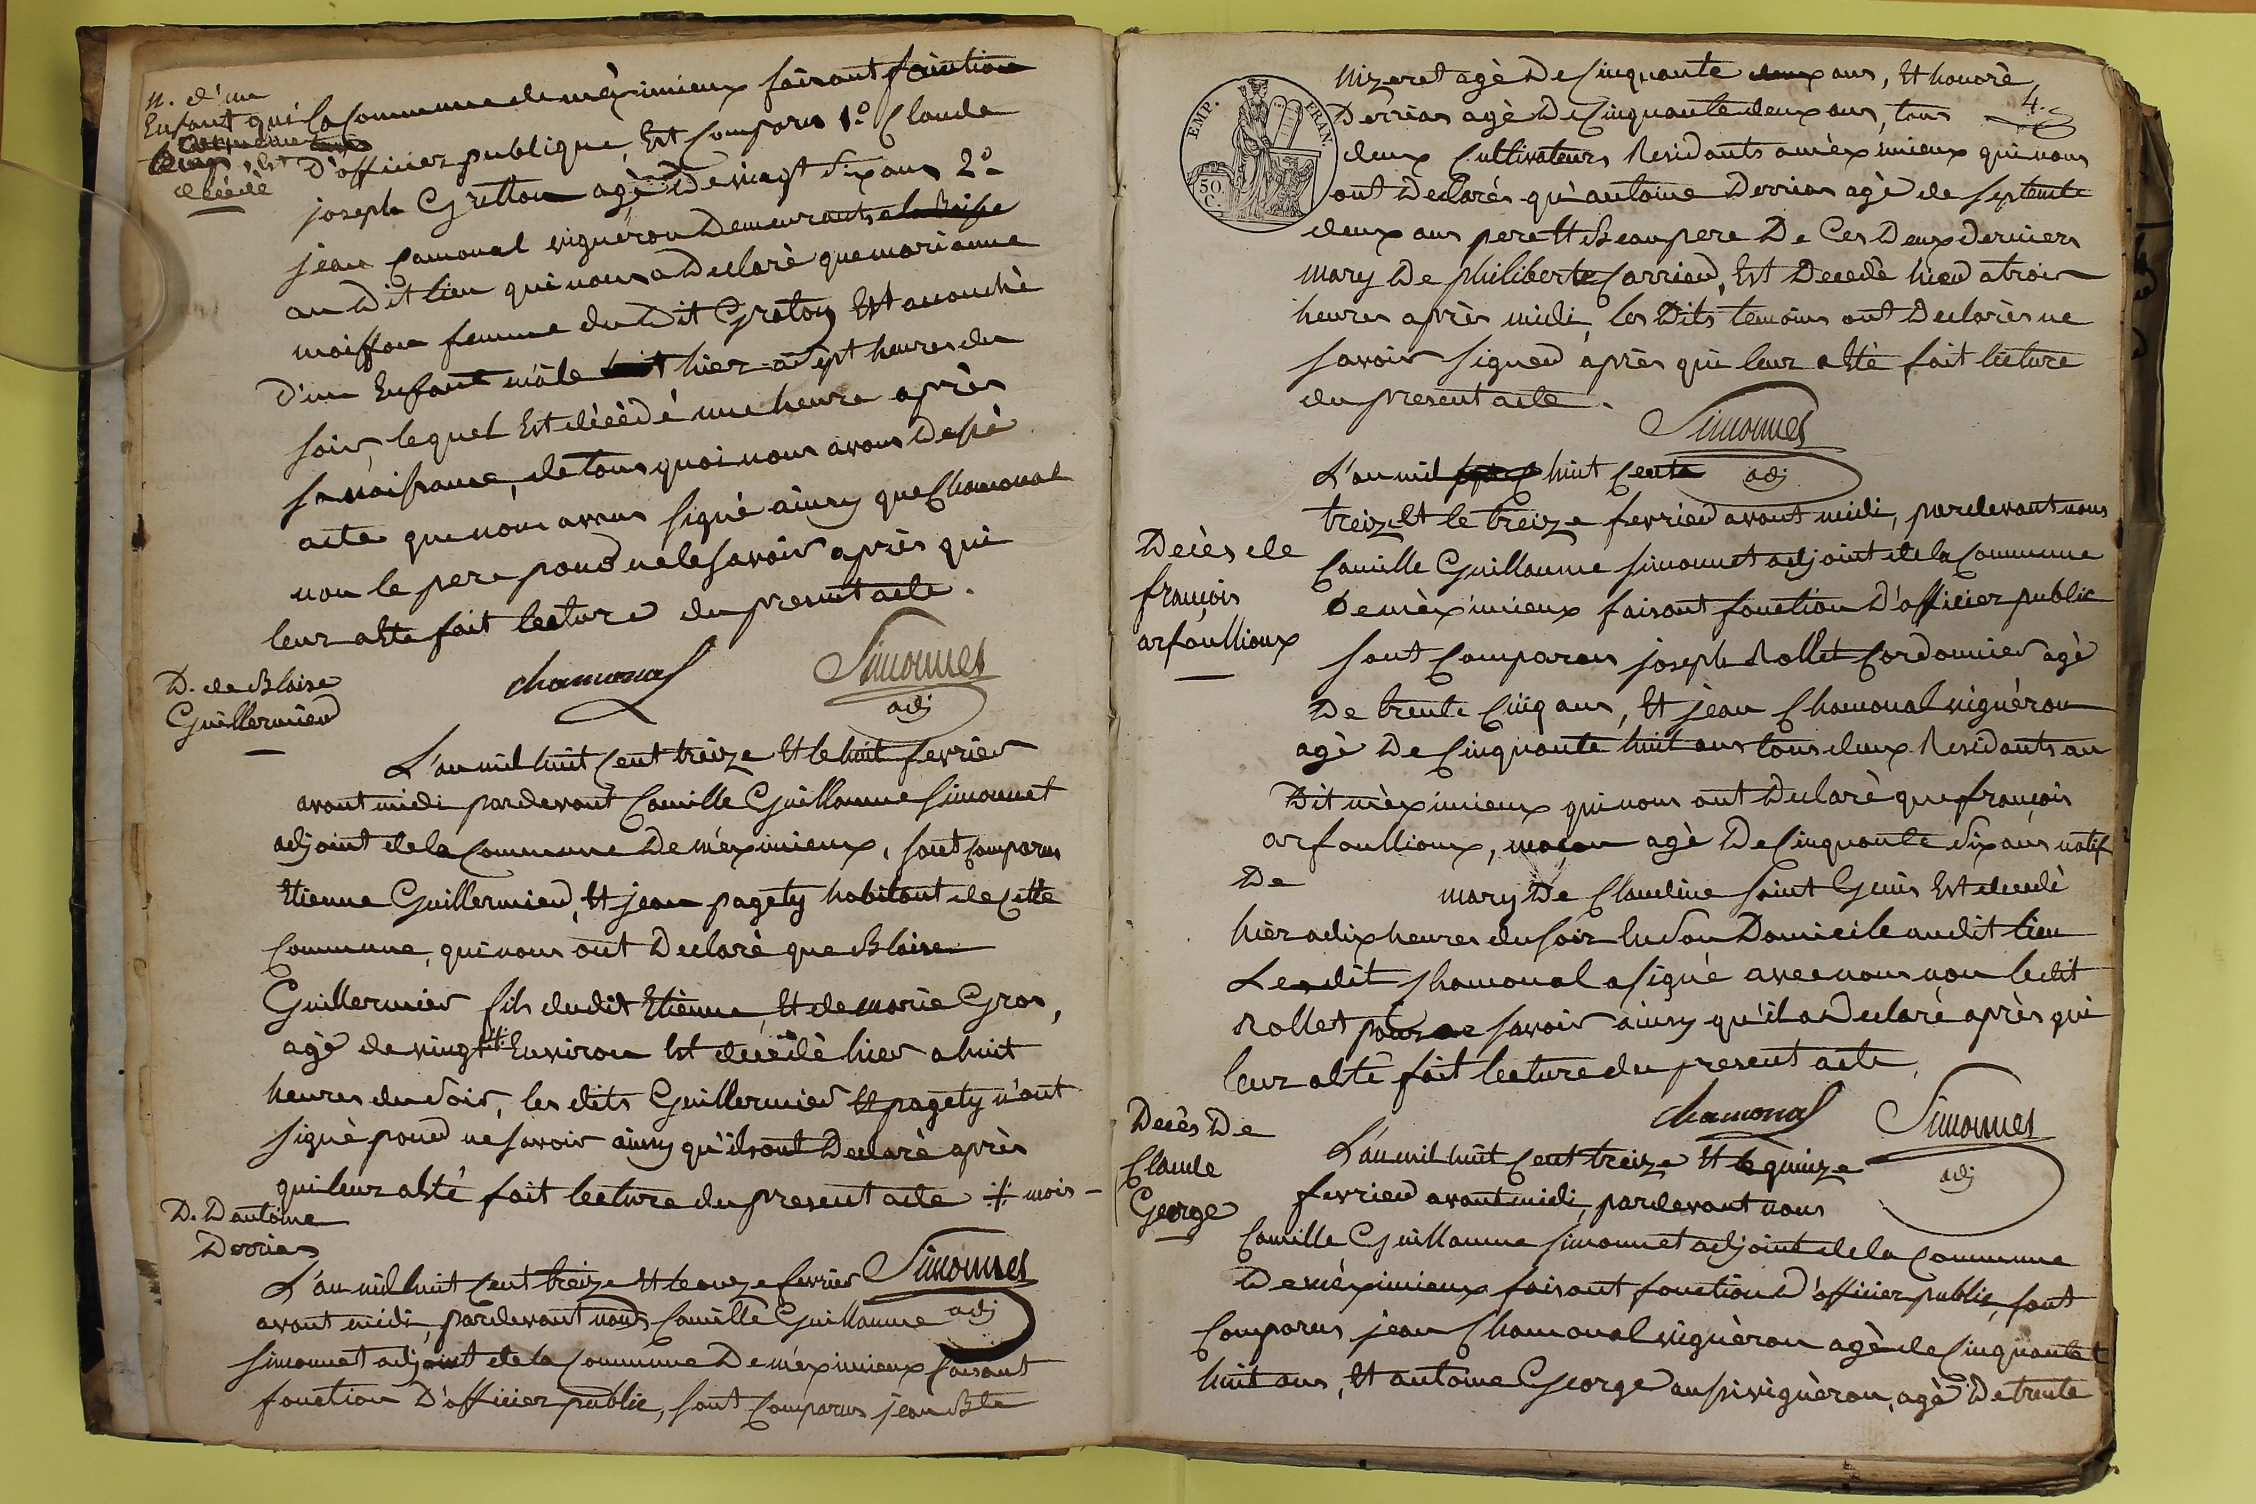 N. d'un
Enfant qui
est
décédé
la Commune de méximieux faisant fonction
D'officier publique, Est Comparu 1.° Claude
joseph Gretton agè De vingt six ans 2.°
jean Camonal vigneron Demeurants
au Dit lieu qui nous a Declarè que marianne
moiffon femme du Dit Greton Est acouchè
D'un Enfant mâle hier a sept heures du
soir, lequel Est décèdé une heure après
sa naissance, de tous quoi nous avons
acte que nous avons signé ainsy que Chamonal
non le pere pour ne le savoir après que
leur a Eté fait lecture du present acte.
chamonal Simonnet
adj
D. de Blaise
Guillermier
L'an mil huit Cent treize Et le huit fevrier
avant midi pardevant Camille Guillaume Simonnet
adjoint de la Commune De méximieux, sont Comparus
Etienne Guillermier, Et jean pagety habitant de Cette
Commune, qui nous ont Declarè que Blaise
Guillermier fils du dit Etienne, Et de marie Gros,
agè de vingt # Environ Est decedè hier a huit
heures du soir, les dits Guillermier Et pagety n'ont
signè pour ne savoir ainsy qu'ils ont Declarè après
que leur a Eté fait lecture du present acte # mois
Simonnet
adj
D. D'antoine
Derrias
L'an mil huit Cent treize Et le onze fevrier
avant midi, pardevant nous Camille Guillaume
simonnet adjoint de la Commune De méximieux faisant
fonction D'officier public, sont Comparus jean Bte
4.
EMP. FRAN.
50.
C.
Nizeret agè De Cinquante deux ans, Et honorè
Derrias agè De Cinquante deux ans, tous
deux Cultivateurs Residants a mèximieux qui nous
ont Declarés qu'antoine Derrias agè de septente
deux ans pere Et Beaupere De Ces Deux derniers
mary De philiberte Carrier, Est Decedè hier a trois
heures après midi, les Dits temoins ont Declarès ne
savoir signer après que leur a Eté fait lecture
du present acte.
Simonnet
adj
Decès de
françois
arfoullioux
L'an mil huit Cents
treize Et le treize fevrier avant midi, pardevant nous
Camille Guillaume simonnet adjoint de la Commune
De mèximieux faisant fonction D'officier public
sont Comparus joseph Rollet Cordonnier agè
De trente Cinq ans, Et jean Chamonal vignéron
agè De Cinquante huit ans tous deux Residants au
Dit mèximieux qui nous ont Declarè que françois
arfoullioux, maçon agè De Cinquante six ans natif
De mary De Claudine Saint Genis Est decedè
hièr a dix heures du soir En son Domicile au dit lieu
Le dit Chamonal a signé avec nous non le dit
Rollet pour ne savoir ainsy qu'il a Declaré après que
leur a Eté fait lecture du present acte.
Chamonal Simonnet
adj
Decès De
Claude
George
L'an mil huit Cent treize Et le quinze
fevrier avant midi, pardevant nous
Camille Guillaume simonnet adjoint de la Commune
De mèximieux faisant fonction D'officier public, sont
Comparus jean Chamonal vignèron agè de Cinquante
huit ans, Et antoine George aussi vignèron, agè De trente